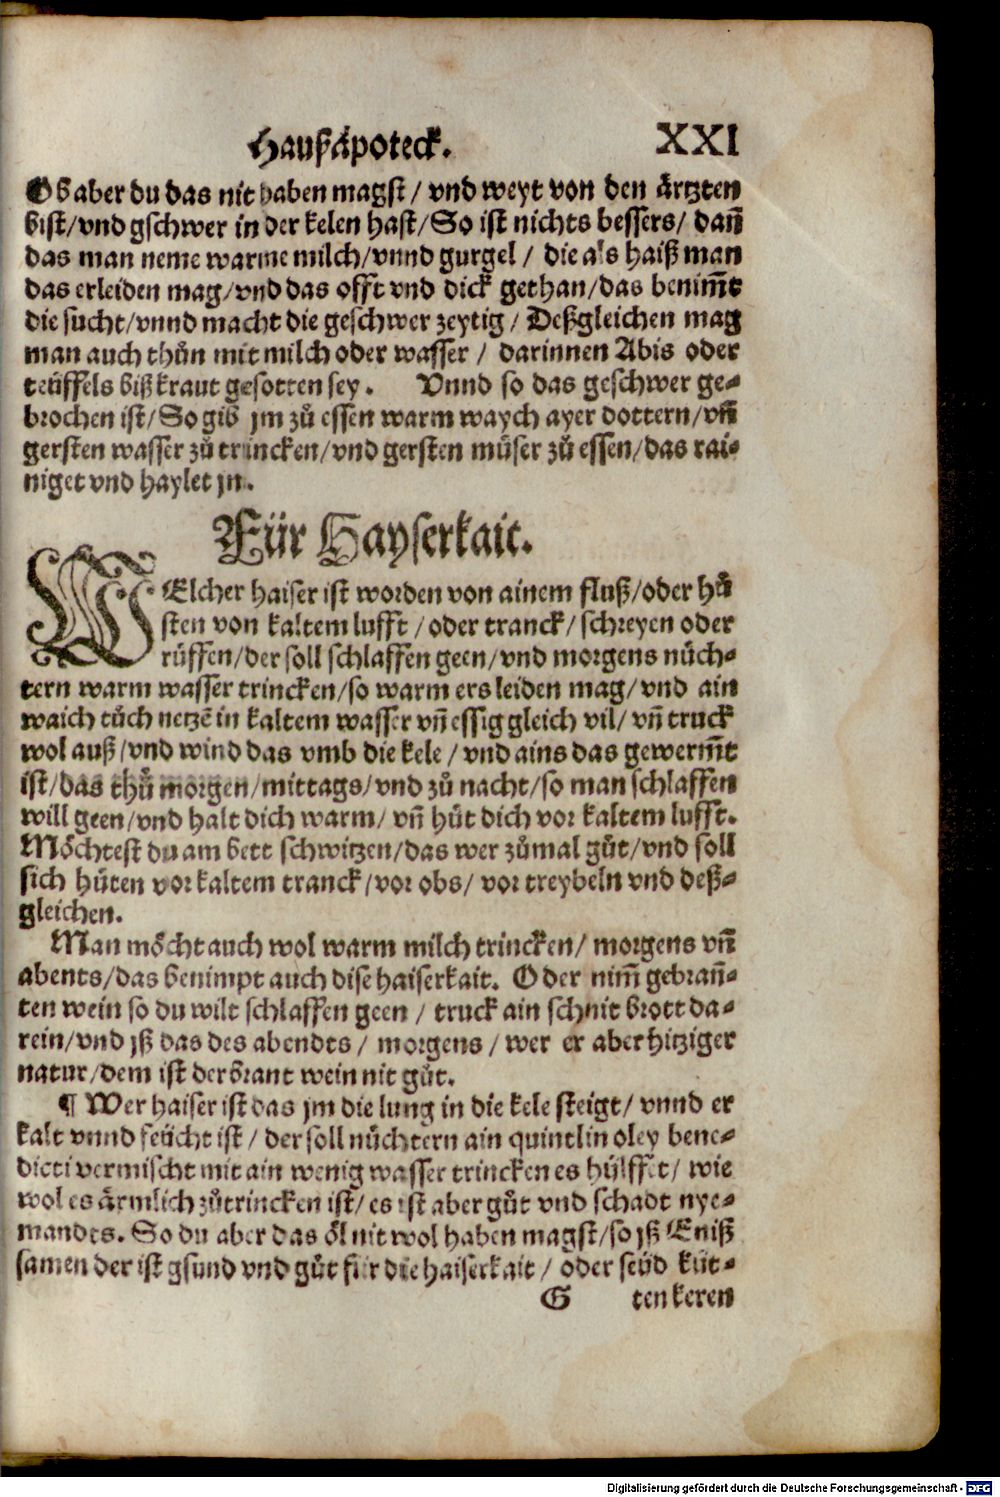 Haußäpoteck. XXI
Ob aber du das nit haben magst / vnd weyt von den ärtzten
bist/vnd gschwer in der kelen hast/So ist nichts bessers/ dañ
das man neme warme milch/vnnd gurgel / die als haiß man
das erleiden mag/vnd das offt vnd dick gethan/das benim̃t
die sucht/vnnd macht die geschwer zeytig / Deßgleichen mag
man auch thůn mit milch oder wasser / darinnen Abis oder
teüffels biß kraut gesotten sey. Vnnd so das geschwer ge-
brochen ist/So gib jm zů essen warm waych ayer dottern/vñ
gersten wasser zů trincken/vnd gersten můser zů essen/das rai-
niget vnd haylet jn.
Für Hayserkait.
WElcher haiser ist worden von ainem fluß/oder hů
sten von kaltem lufft / oder tranck/ schreyen oder
rüffen/der soll schlaffen geen/vnd morgens nůch-
tern warm wasser trincken/so warm ers leiden mag/ vnd ain
waich tůch netzē in kaltem wasser vñ essig gleich vil/ vñ truck
wol auß/vnd wind das vmb die kele / vnd ains das gewerm̃t
ist/das thů morgen/mittags/vnd zů nacht/so man schlaffen
will geen/vnd halt dich warm/ vñ hůt dich vor kaltem lufft.
Möchtest du am bett schwitzen/das wer zůmal gůt/vnd soll
sich hüten vor kaltem tranck/vor obs/ vor treybeln vnd deß-
gleichen.
Man möcht auch wol warm milch trincken/ morgens vñ
abents/das benimpt auch dise haiserkait. Oder nim̃ gebrañ-
ten wein so du wilt schlaffen geen / truck ain schnit brott da-
rein/vnd jß das des abendts / morgens / wer er aber hitziger
natur/dem ist der brant wein nit gůt.
¶ Wer haiser ist das jm die lung in die kele steigt/ vnnd er
kalt vnnd feücht ist / der soll nůchtern ain quintlin oley bene-
dicti vermischt mit ain wenig wasser trincken es hülffet/ wie
wol es ärmlich zůtrincken ist/ es ist aber gůt vnd schadt nye-
mandts. So du aber das öl nit wol haben magst/so jß Eniß
samen der ist gsund vnd gůt für die haiserkait / oder seüd küt-
G ten keren
Digitalisierung gefördert durch die Deutsche Forschungsgemeinschaft - DFG